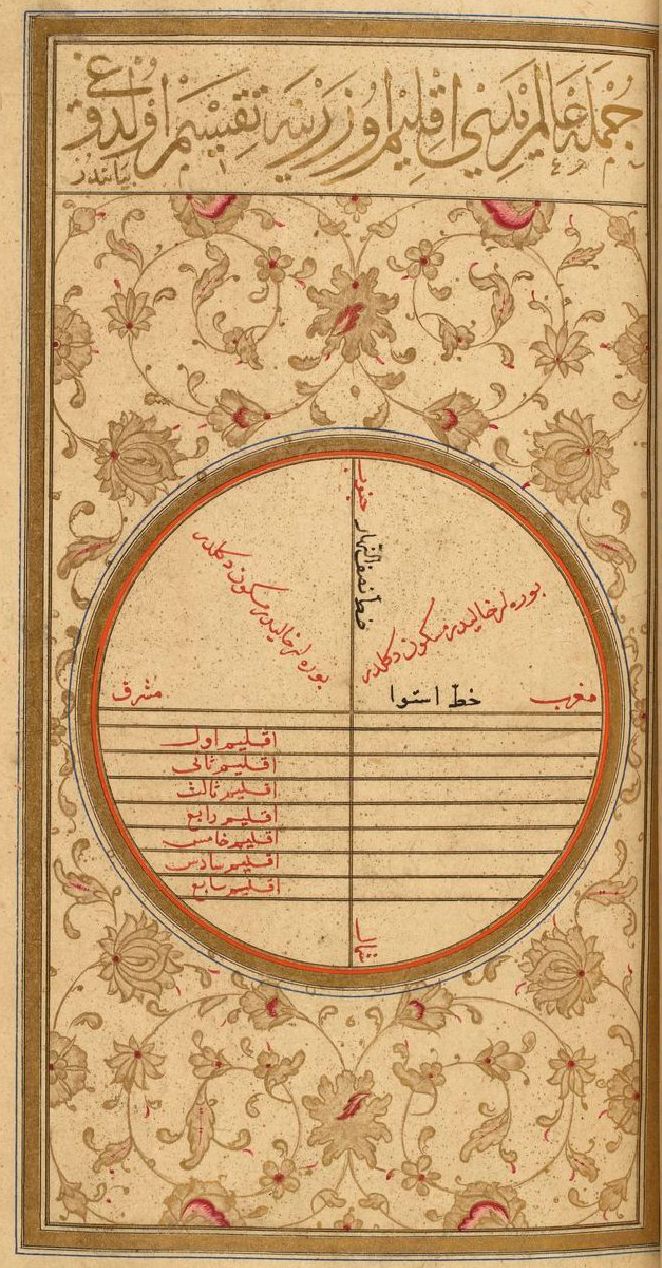 جمله عالم يدي اقليم اوزرينه تقسيم اولدوغى
بياندر
جنوب
خط نصف النهار
بوره لر خاليدر مسكون دكلدر
بوره لر خاليدر مسكون دكلدر
مغرب
خط استوا
مشرق
اقليم اول
اقليم ثانى
اقليم ثالث
اقليم رابع
اقليم خامس
اقليم سادس
اقليم سابع
شمال